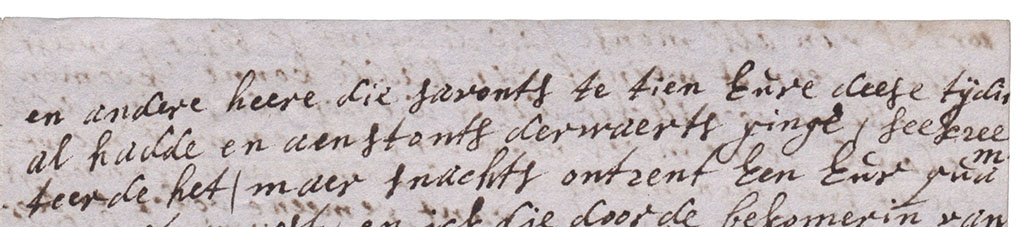 en andere heere die savonts te tien Eure deese tijdin
al hadde en aenstonts derwaerts ginge, secre
teerde het / maer snachts ontrent Een Eur quam
en ick die doorde bekomerin van